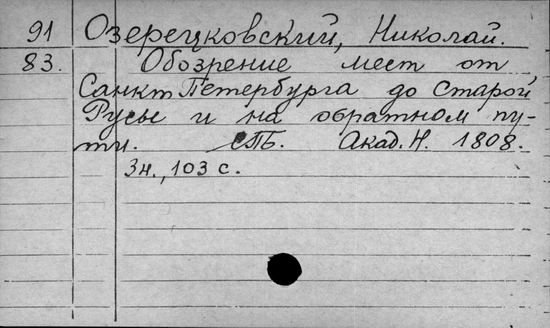 91 Озерецковский, Николай.
83. Обозрение мест от
Санкт Петербурга до Старой
Русье и на обратном пу-
ти. СПБ. Акад. Н. 1808.
3н., 103 с.